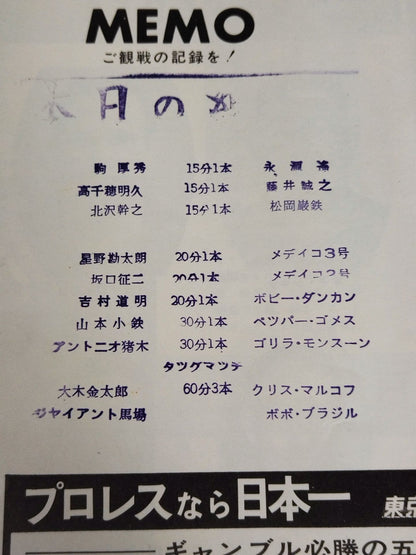 MEMO
ご観戦の記録を!
本日の
駒厚秀 15分1本 永源遙
高千穂明久 15分1本 藤井誠之
北沢幹之 15分1本 松岡巌鉄
星野勘太朗 20分1本 メデイコ3号
坂口征二 20分1本 メデイコ2号
吉村道明 20分1本 ボビー・ダンカン
山本小鉄 30分1本 ペツパー・ゴメス
アントニオ猪木 30分1本 ゴリラ・モンスーン
タツグマツチ
大木金太郎 60分3本 クリス・マルコフ
ジャイアント馬場 ボボ・ブラジル
プロレスなら日本一 東京
ギャンブル必勝の五